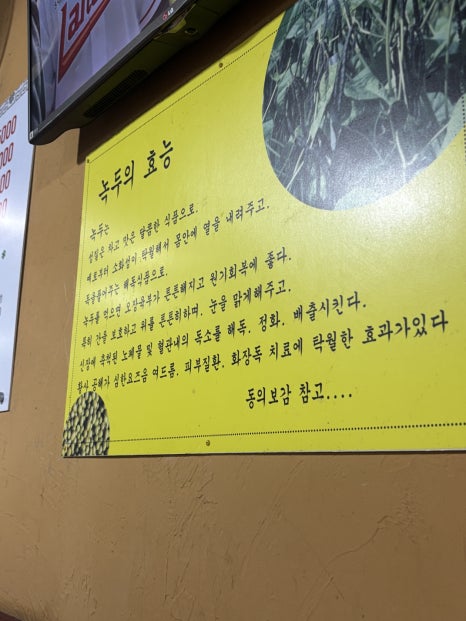 LG
000
000
000
000
녹두의 효능
녹두는
성질은 차고 맛은 달콤한 식품으로.
예로부터 소화성이 탁월해서 몸안에 열을 내려주고.
독을풀어주는 해독식품으로.
녹두를 먹으면 오장육부가 튼튼해지고 원기회복에 좋다.
특히 간을 보호하고 위를 튼튼히하며. 눈을 맑게해주고.
신장에 축적된 노폐물 및 혈관내의 독소를 해독. 정화. 배출시킨다.
황사 공해가 심한요즈음 여드름. 피부질환. 화장독 치료에 탁월한 효과가있다
동의보감 참고....